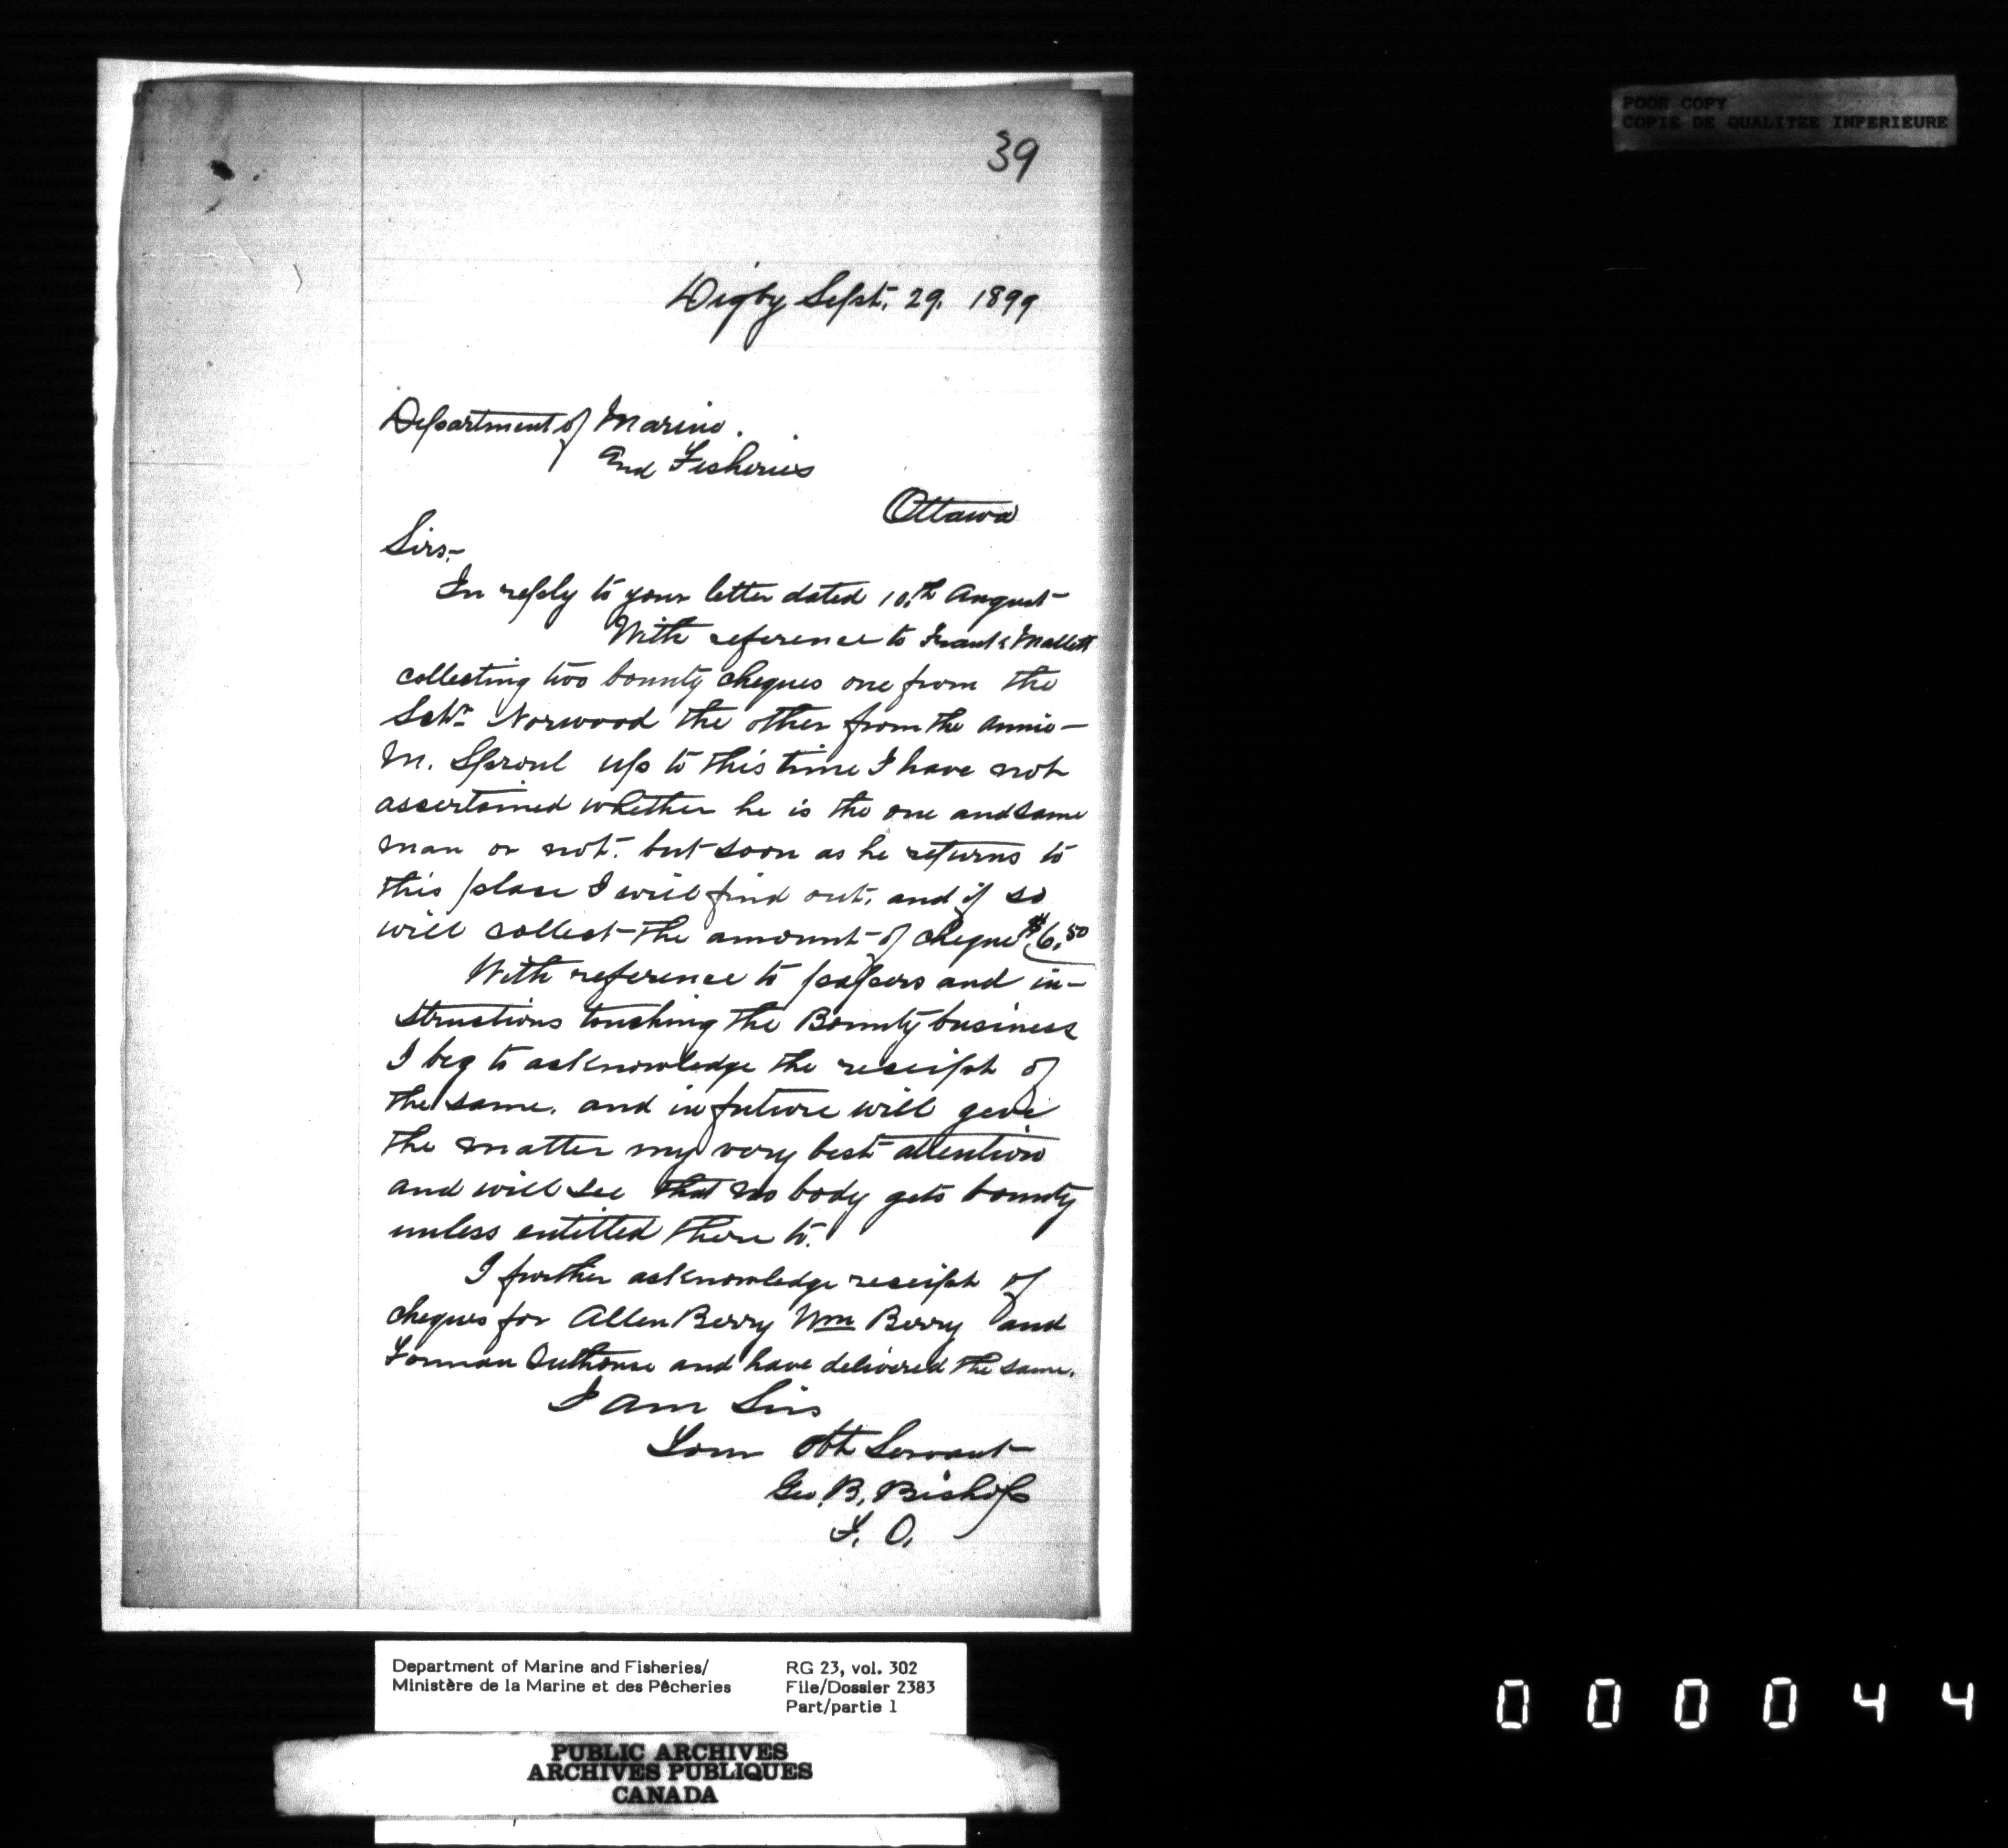 POOR COPY
COPIE DE QUALITEE INFERIEURE
39
Digby Sept. 29. 1899
Department of Marine.
and Fisheries
Ottawa
Sirs,-
In reply to your letter dated 10.th August
With reference to Frank Mallett
collecting two bounty cheques one from the
Schr. Norwood the other from the Annie
M. Sproul up to this time I have not
ascertained whether he is the one and same
man or not. but soon as he returns to
this place I will find out. and if so
will collect the amount of cheque $6.50
With reference to papers and in-
structions touching the Bounty business
I beg to acknowledge the receipt of
the same. and in future will give
the matter my very best attention
and will see that no body gets bounty
unless entitled there to.
I further acknowledge receipt of
cheques for Allen Berry Wm Berry and
Forman Outhouse and have delivered the same.
I am Sirs
Your Obt Servant
Geo. B. Bishop
F. O.
Department of Marine and Fisheries/
Ministère de la Marine et des Pêcheries
RG 23, vol. 302
File/Dossier 2383
Part/partie 1
PUBLIC ARCHIVES
ARCHIVES PUBLIQUES
CANADA
000044